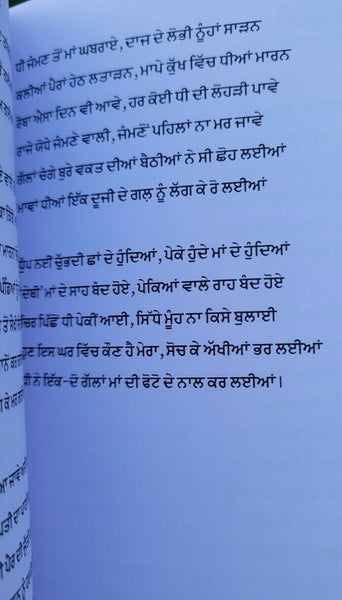 ਧੀ ਜੰਮਣ ਤੋਂ ਮਾਂ ਘਬਰਾਏ, ਦਾਜ ਦੇ ਲੋਭੀ ਨੂੰਹਾਂ ਸਾੜਨ
ਕਲੀਆਂ ਪੈਰਾਂ ਹੇਠ ਲਤਾੜਨ, ਮਾਪੇ ਕੁੱਖ ਵਿੱਚ ਧੀਆਂ ਮਾਰਨ
ਰੱਬਾ ਐਸਾ ਦਿਨ ਵੀ ਆਵੇ, ਹਰ ਕੋਈ ਧੀ ਦੀ ਲੋਹੜੀ ਪਾਵੇ
ਰਾਜੇ ਯੋਧੇ ਜੰਮਣੇ ਵਾਲੀ, ਜੰਮਣੋਂ ਪਹਿਲਾਂ ਨਾ ਮਰ ਜਾਵੇ
ਗੱਲਾਂ ਚੰਗੇ ਬੁਰੇ ਵਕਤ ਦੀਆਂ ਬੈਠੀਆਂ ਨੇ ਸੀ ਛੋਹ ਲਈਆਂ
ਮਾਵਾਂ ਧੀਆਂ ਇੱਕ ਦੂਜੀ ਦੇ ਗਲ਼ ਨੂੰ ਲੱਗ ਕੇ ਰੋ ਲਈਆਂ
ਧੁੱਪ ਨਈਂ ਚੁੱਭਦੀ ਛਾਂ ਦੇ ਹੁੰਦਿਆਂ, ਪੇਕੇ ਹੁੰਦੇ ਮਾਂ ਦੇ ਹੁੰਦਿਆਂ
ਮਾਂ ਦੇ ਸਾਹ ਬੰਦ ਹੋਏ, ਪੇਕਿਆਂ ਵਾਲੇ ਰਾਹ ਬੰਦ ਹੋਏ
ਚਿਰ ਪਿੱਛੋਂ ਧੀ ਪੇਕੀਂ ਆਈ, ਸਿੱਧੇ ਮੂੰਹ ਨਾ ਕਿਸੇ ਬੁਲਾਈ
ਹੁਣ ਇਸ ਘਰ ਵਿੱਚ ਕੌਣ ਹੈ ਮੇਰਾ, ਸੋਚ ਕੇ ਅੱਖੀਆਂ ਭਰ ਲਈਆਂ
ਧੀ ਨੇ ਇੱਕ-ਦੋ ਗੱਲਾਂ ਮਾਂ ਦੀ ਫੋਟੋ ਦੇ ਨਾਲ ਕਰ ਲਈਆਂ।